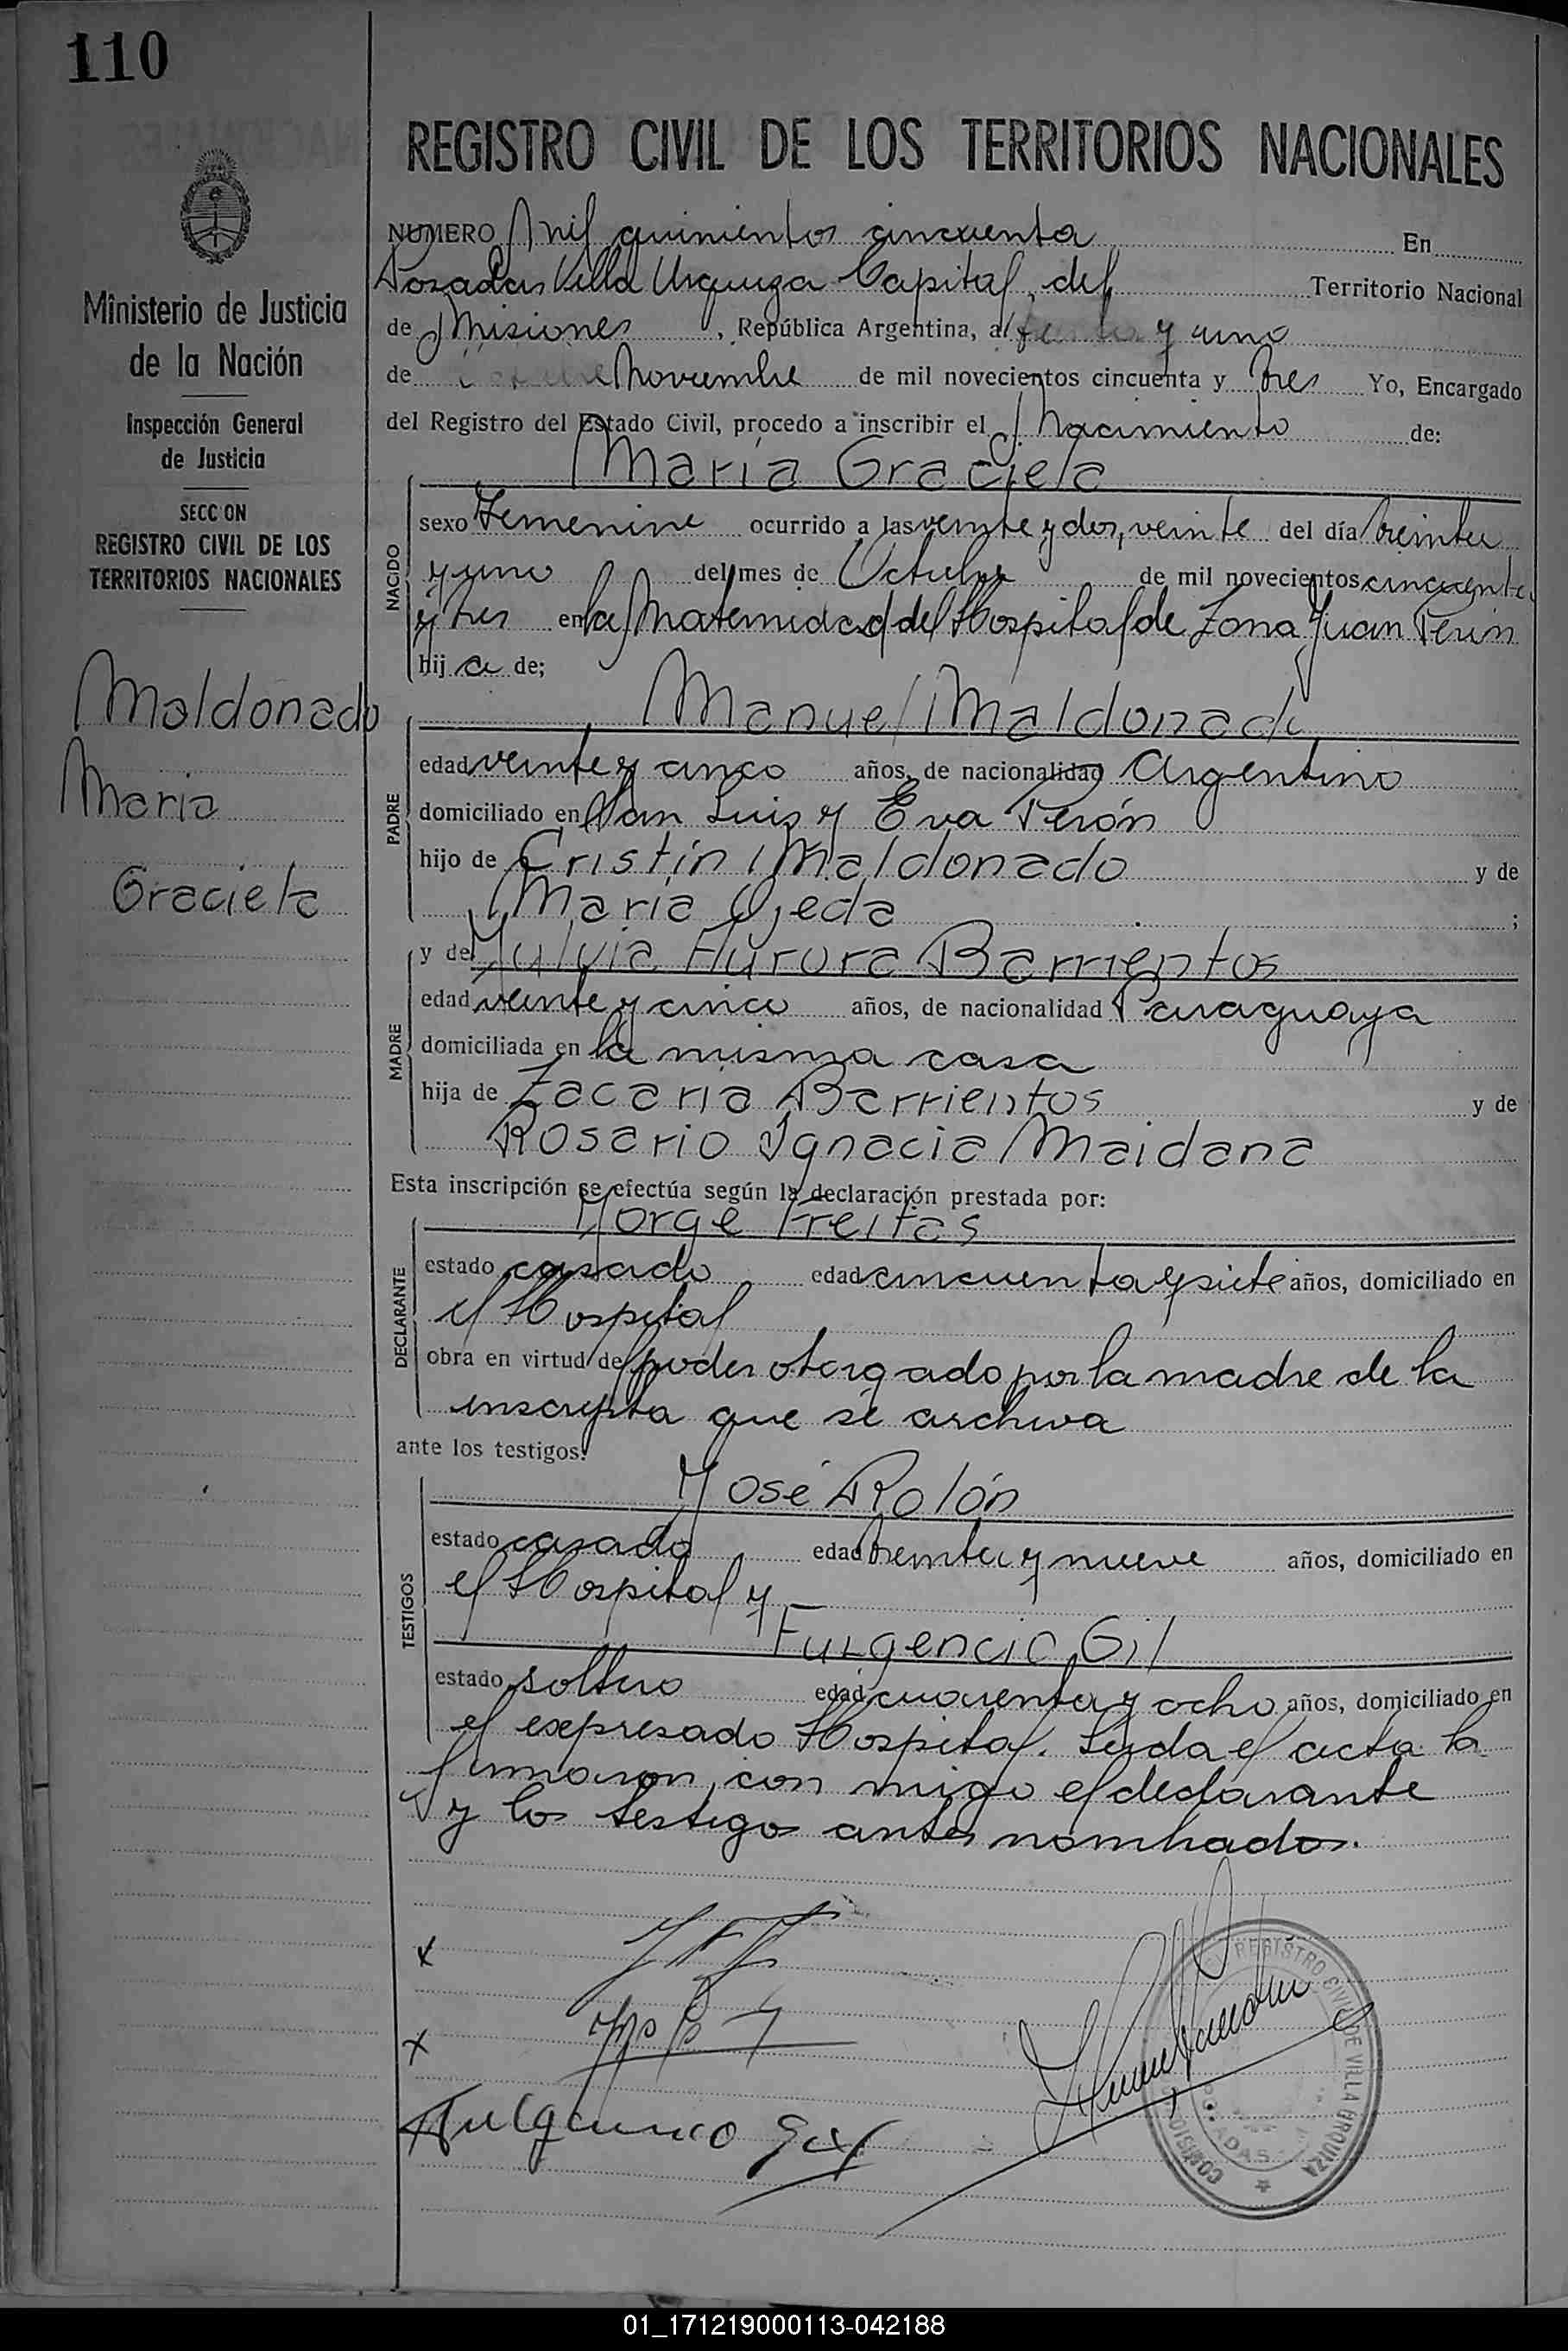 110
REGISTRO CIVIL DE LOS TERRITORIOS NACIONALES
Ministerio de Justicia
de la Nación
Inspección General
de Justicia
SECC ON
REGISTRO CIVIL DE LOS
TERRITORIOS NACIONALES
Maldonado
Maria
Graciela
NUMERO Mil quinientos cincuenta En
Posadas Villa Urquiza Capital del Territorio Nacional
de Misiones, República Argentina, a y uno
de Noviembre de mil novecientos cincuenta y tres Yo, Encargado
del Registro del Estado Civil, procedo a inscribir el Nacimiento de:
María Graciela
NACIDO
sexo Femenino ocurrido a las veinte y dos, veinte del día treinta
y uno del mes de Octubre de mil novecientos cincuenta
y tres en la Maternidad del Hospital de Zona Juan Perón
hij a de;
Manuel Maldonado
PADRE
edad veinte y cinco años, de nacionalidad Argentino
domiciliado en San Luis y Eva Perón
hijo de Cristín Maldonado y de
María Ojeda ;
MADRE
y de Julvia Aurora Barrientos
edad veinte y cinco años, de nacionalidad Paraguaya
domiciliada en la misma casa
hija de Zacaria Barrientos y de
Rosario Ignacia Maidana
Esta inscripción se efectúa según la declaración prestada por:
Jorge Freitas
DECLARANTE
estado casado edad cincuenta y siete años, domiciliado en
el Hospital
obra en virtud de poder otorgado por la madre de la
inscripta que se archiva
ante los testigos:
José Rolón
TESTIGOS
estado casado edad treinta y nueve años, domiciliado en
el Hospital y
Fulgencio Gil
estado soltero edad cuarenta y ocho años, domiciliado en
el expresado Hospital. Leida el acta la
firmaron, con migo el declarante
y los testigos antes nombrados.
x
x
Fulgencio Gil
REGISTRO CIVIL DE VILLA URQUIZA
POSADAS
01_171219000113-042188